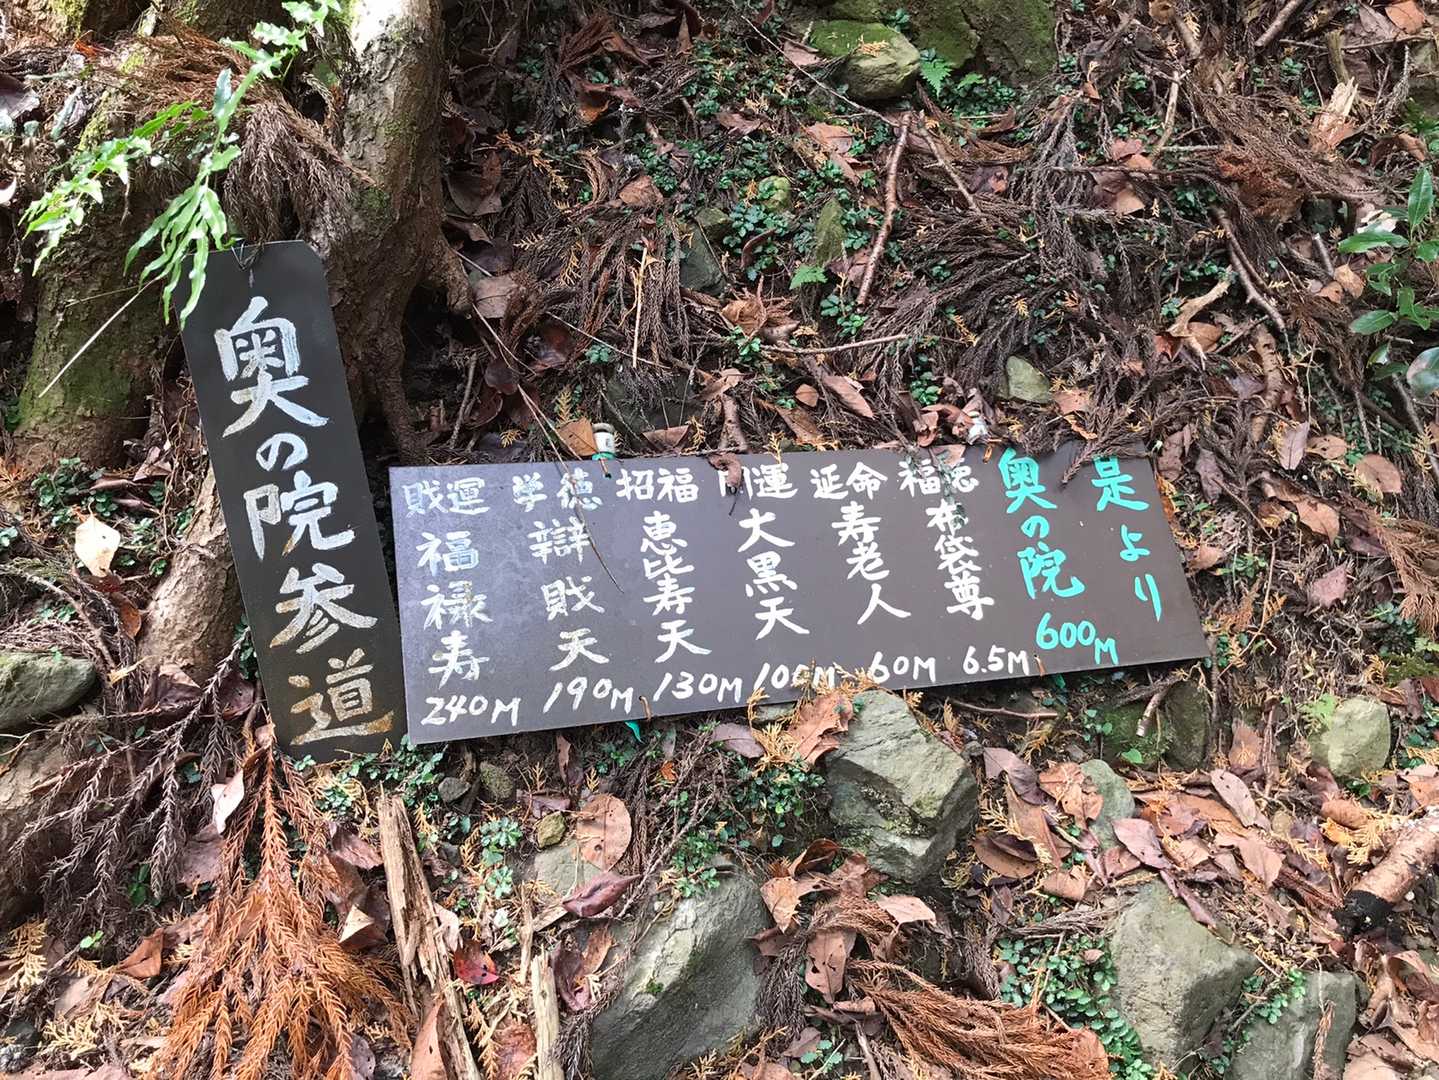 奥の院参道
是より
奥の院 600M
福徳 布袋尊 6.5M
延命 寿老人 60M
開運 大黒天 100M
招福 恵比寿天 130M
学徳 辯戝天 190M
戝運 福禄寿 240M